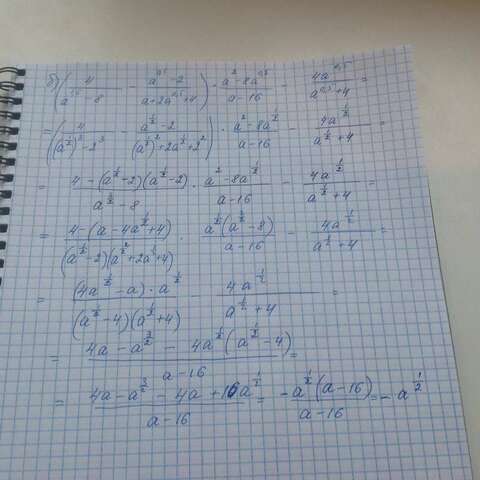 б) (4/(a^1,5 - 8) - (a^0,5 - 2)/(a + 2a^0,5 + 4)) · (a^2 - 8a^0,5)/(a - 16) - 4a^0,5/(a^0,5 + 4) =
= (4/((a^1/2)^3 - 2^3) - (a^1/2 - 2)/((a^1/2)^2 + 2a^1/2 + 2^2)) · (a^2 - 8a^1/2)/(a - 16) - 4a^1/2/(a^1/2 + 4) =
= (4 - (a^1/2 + 2)(a^1/2 - 2))/(a^3/2 - 8) · (a^2 - 8a^1/2)/(a - 16) - 4a^1/2/(a^1/2 + 4) =
= (4 - (a - 4a^1/2 + 4))/((a^1/2 - 2)(a^1/2 + 2a^1/2 + 4)) · a^1/2(a^3/2 - 8)/(a - 16) - 4a^1/2/(a^1/2 + 4) =
= (4a^1/2 - a) · a^1/2/((a^1/2 - 4)(a^1/2 + 4)) - 4a^1/2/(a^1/2 + 4) =
= (4a - a^3/2 - 4a^1/2(a^1/2 - 4))/(a - 16) =
= (4a - a^3/2 - 4a + 16a^1/2)/(a - 16) = -a^1/2(a - 16)/(a - 16) = - a^1/2